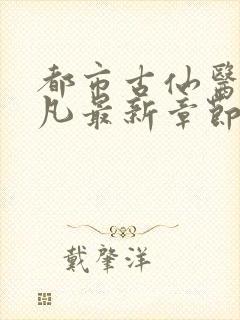 都市古仙醫
凡最新章節
戴肇洋